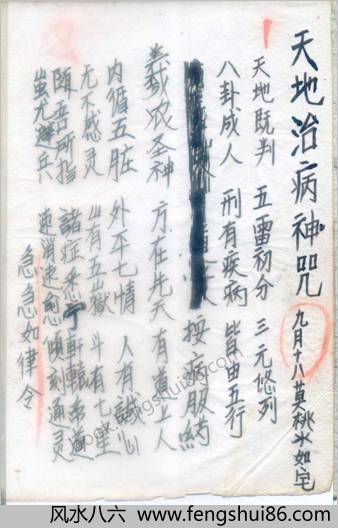 天地治病神咒 九月十八莫桃
天地既判 五雷初分 三元悠列
八卦成人 刑有疾病 皆由五行
按病服药
羲农圣神 方在先天 有道上人
内循五脏 外平七情 人有誠心
无不感灵 山有五嶽 斗有七星
随吾所指 諸症 軒轅
蚩尤避兵 速消速愈 傾刻通灵
急急如律令
book.fengshui86.com
风水八六 www.fengshui86.com